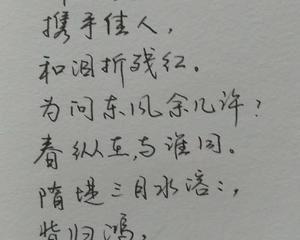 携手佳人，
和泪折残红。
为问东风余几许？
春纵在，与谁同。
隋堤三月水溶溶，
背归鸿，